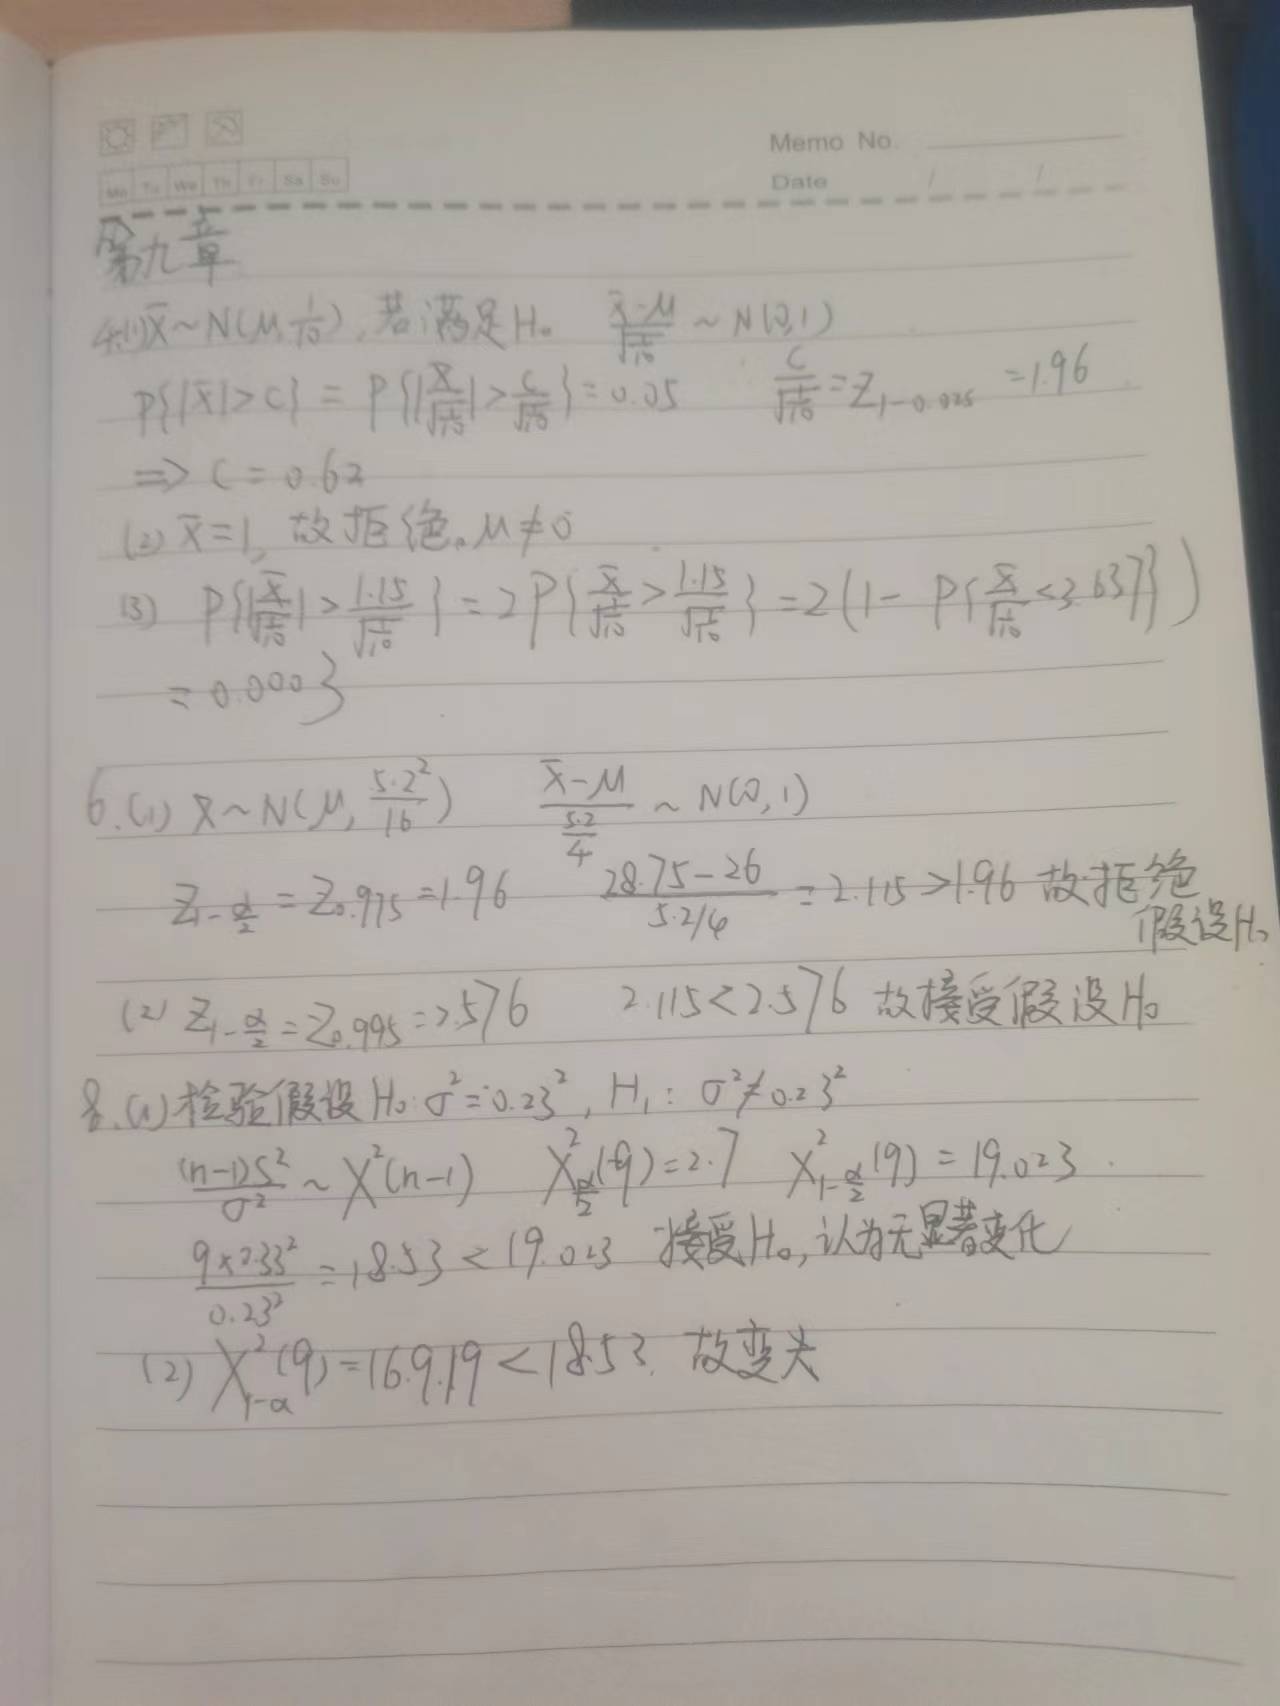 Memo No.
Mo Tu We Th Fr Sa Su
Date / /
第九章
4.(1) X̄~N(μ,1/10), 若满足H₀ (X̄-μ)/√(1/10) ~ N(0,1)
P{|X̄|>C} = P{|X̄/√(1/10)|>C/√(1/10)}=0.05 C/√(1/10)=Z₁₋₀.₀₂₅ =1.96
⇒ C=0.62
(2) X̄=1, 故拒绝。μ≠0
(3) P{|X̄/√(1/10)|>1.15/√(1/10)}=2P{X̄/√(1/10)>1.15/√(1/10)}=2(1-P{X̄/√(1/10)<3.637})
=0.0003
6.(1) X̄~N(μ,5.2²/16) (X̄-μ)/(5.2/4) ~ N(0,1)
Z₁₋α/₂=Z₀.₉₇₅=1.96 (28.75-26)/(5.2/4)=2.115>1.96 故拒绝
假设H₀
(2) Z₁₋α/₂=Z₀.₉₉₅=2.576 2.115<2.576 故接受假设H₀
8.(1)检验假设H₀:σ²=0.23², H₁: σ²≠0.23²
(n-1)S²/σ² ~ χ²(n-1) χ²α/₂(9)=2.7 χ²₁₋α/₂(9)=19.023
9×0.33²/0.23²=18.53<19.023 接受H₀,认为无显著变化
(2) χ²₁₋α(9)=16.919<18.53. 故变大